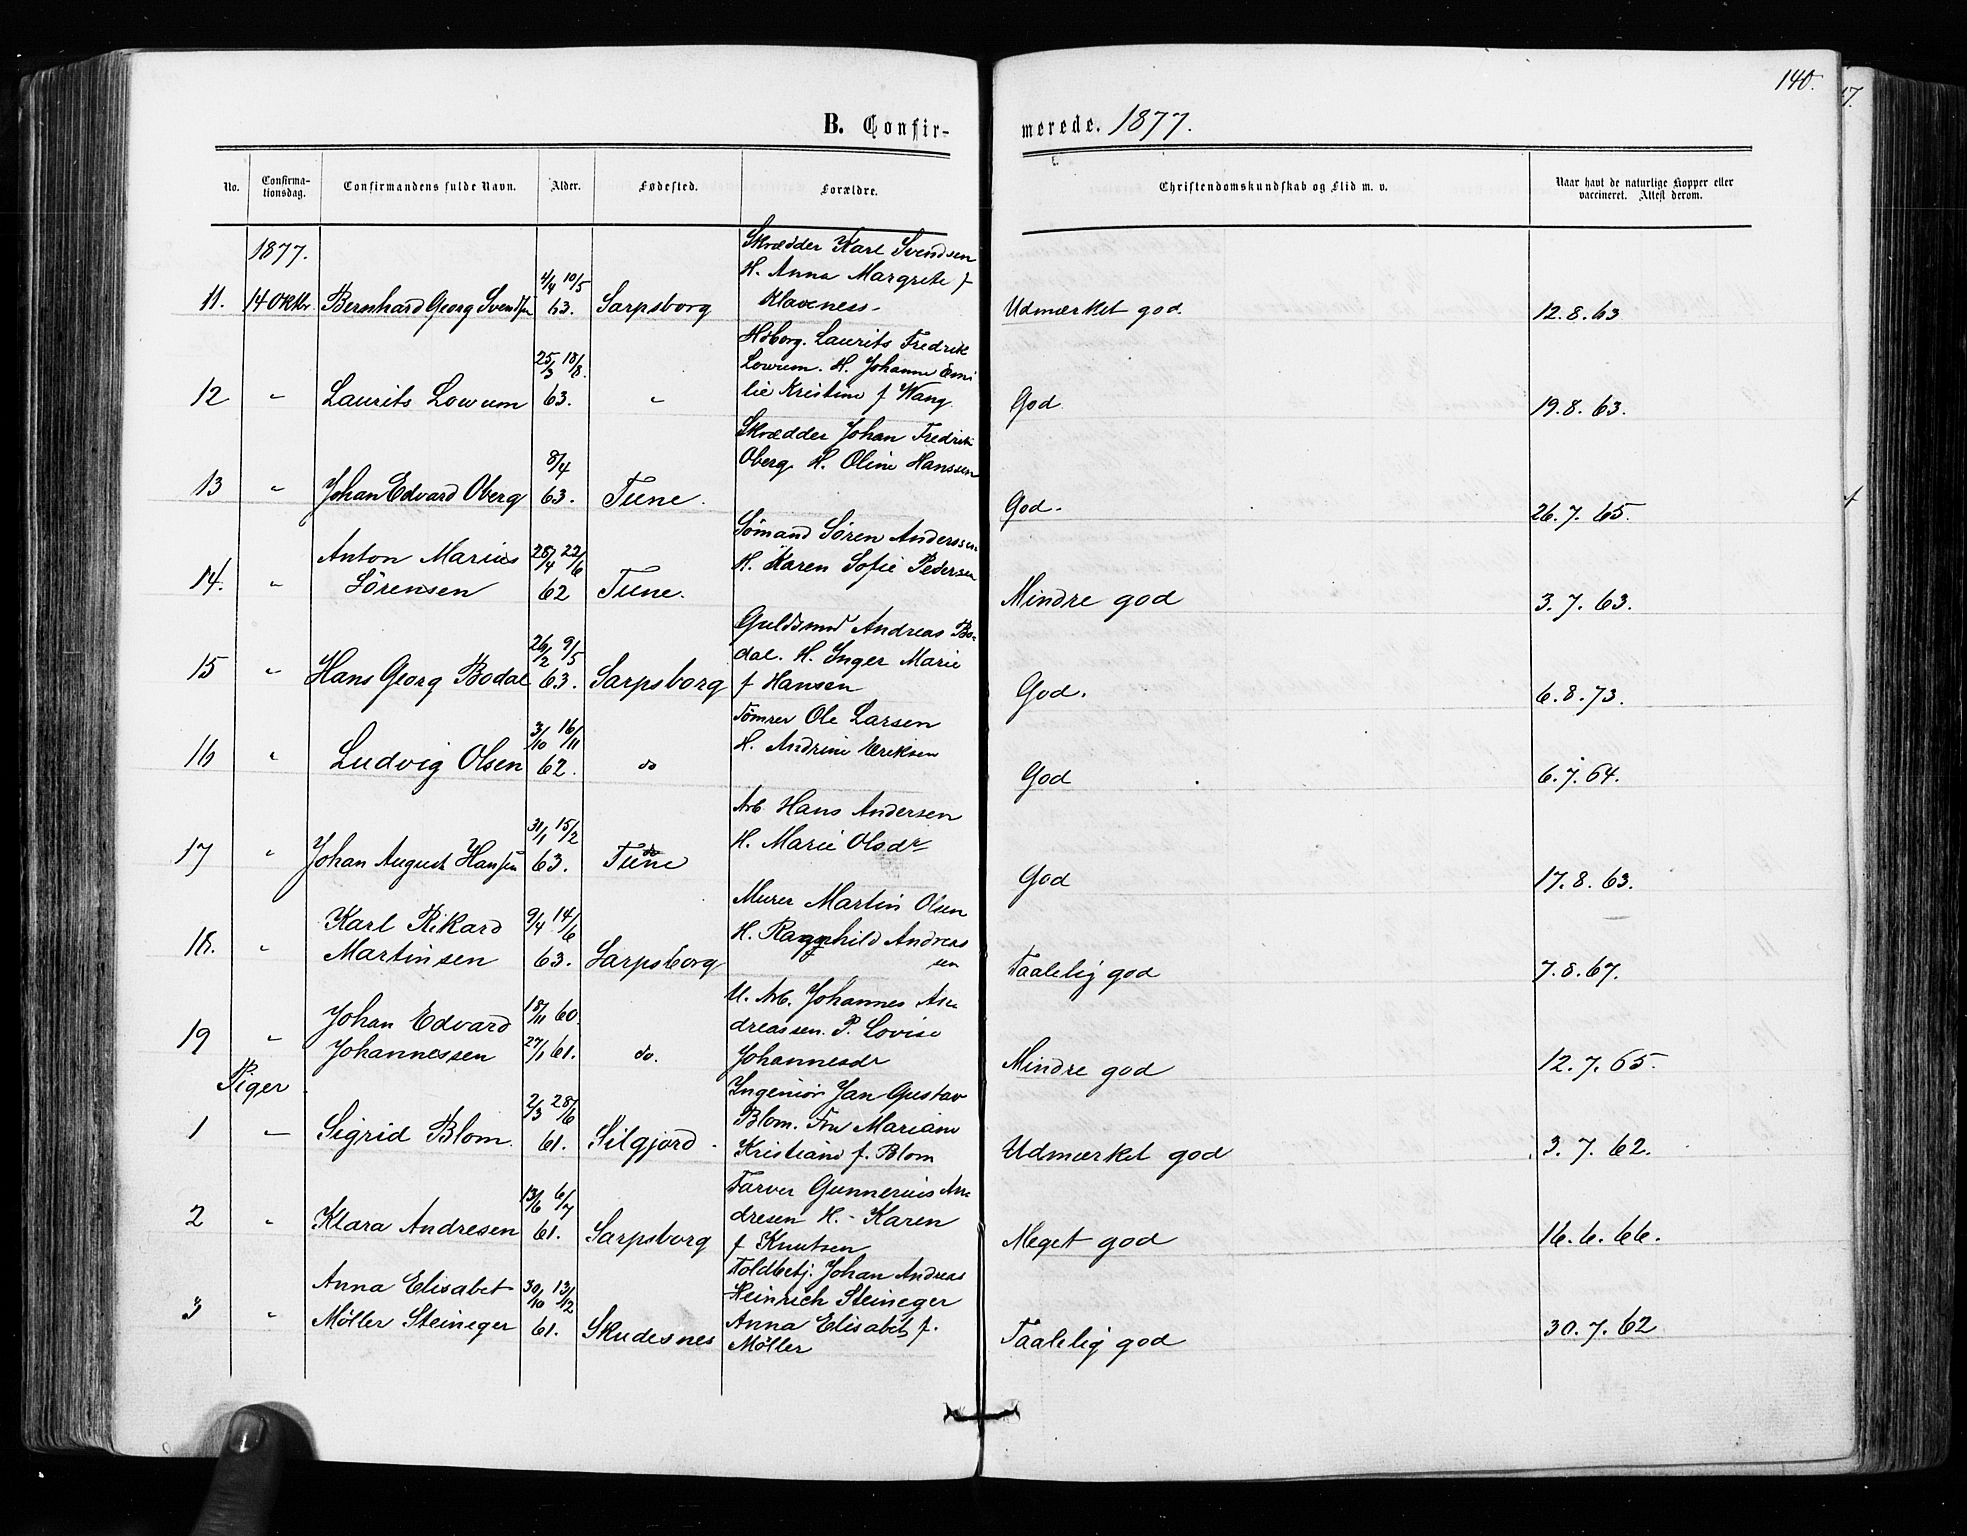 140.
B. Confir-
merede. 1877.
No.
Confirma-
tionsdag.
Confirmandens fulde Navn.
Alder.
Fødested.
Forældre.
Christendomskundskab og Flid m. v.
Naar havt de naturlige Kopper eller
vaccineret. Attest derom.
1877.
Skrædder Karl Svendsen
H. Anna Margrete f
Klaveness.
4/4 10/5
11. 14 Oktbr. Bernhard Georg Svendsen 63. Sarpsborg
Udmærket god. 12.8.63
Hsborg. Laurits Fredrik
Lowum. H. Johanne Emi
lie Kristine f Wang.
25/3 18/8.
12 " Laurits Lowum 63. "
God 19.8.63.
Skrædder Johan Fredrik
Oberg. H. Oline Hanssen
8/4
13 " Johan Edvard Oberg 63. Tune.
God. 26.7.65.
Sømand Søren Anderssen
H. Karen Sofie Pedersen
Anton Marius 28/4 22/6
14. " Sørensen 62 Tune.
Mindre god 3.7.63.
Guldsmed Andreas Bo-
dal. H. Inger Marie
f Hansen
26/2 9/5
15 " Hans Georg Bodal 63. Sarpsborg
God. 6.8.73.
Tømrer Ole Larsen
H. Andrine Eriksen
3/10 16/11
16 " Ludvig Olsen 62. do
God 6.7.64.
Arb. Hans Andersen
H. Marie Olsdr
31/1 15/2
17 " Johan August Hansen 63. Tune
God 17.8.63.
Murer Martin Olsen
H. Ragnhild Andreas
sen
Karl Rikard 9/4 14/6
18. " Martinsen 63. Sarpsborg
Taalelig god 7.8.67.
U. Arb. Johannes An
dreassen. P. Lovise
Johannesdr
Johan Edvard 18/11 60.
19 " Johannessen 27/1 61. do.
Mindre god 12.7.65.
Piger
Ingeniør Jan Gustav
Blom. Fru Mariane
Kristiane f. Blom
2/3 28/6
1 " Sigrid Blom. 61. Silgjord.
Udmærket god 3.7.62.
Farver Gunnerius An
dresen H. - Karen
f Knutsen
13/6 6/7
2 " Klara Andresen 61. Sarpsborg
Meget god 16.6.66.
Toldbetj. Johan Andreas
Heinrich Steineger
Anna Elisabet f.
Møller
Anna Elisabet 30/10 13/12
3 " Møller Steineger 61. Skudesnes
Taalelig god 30.7.62